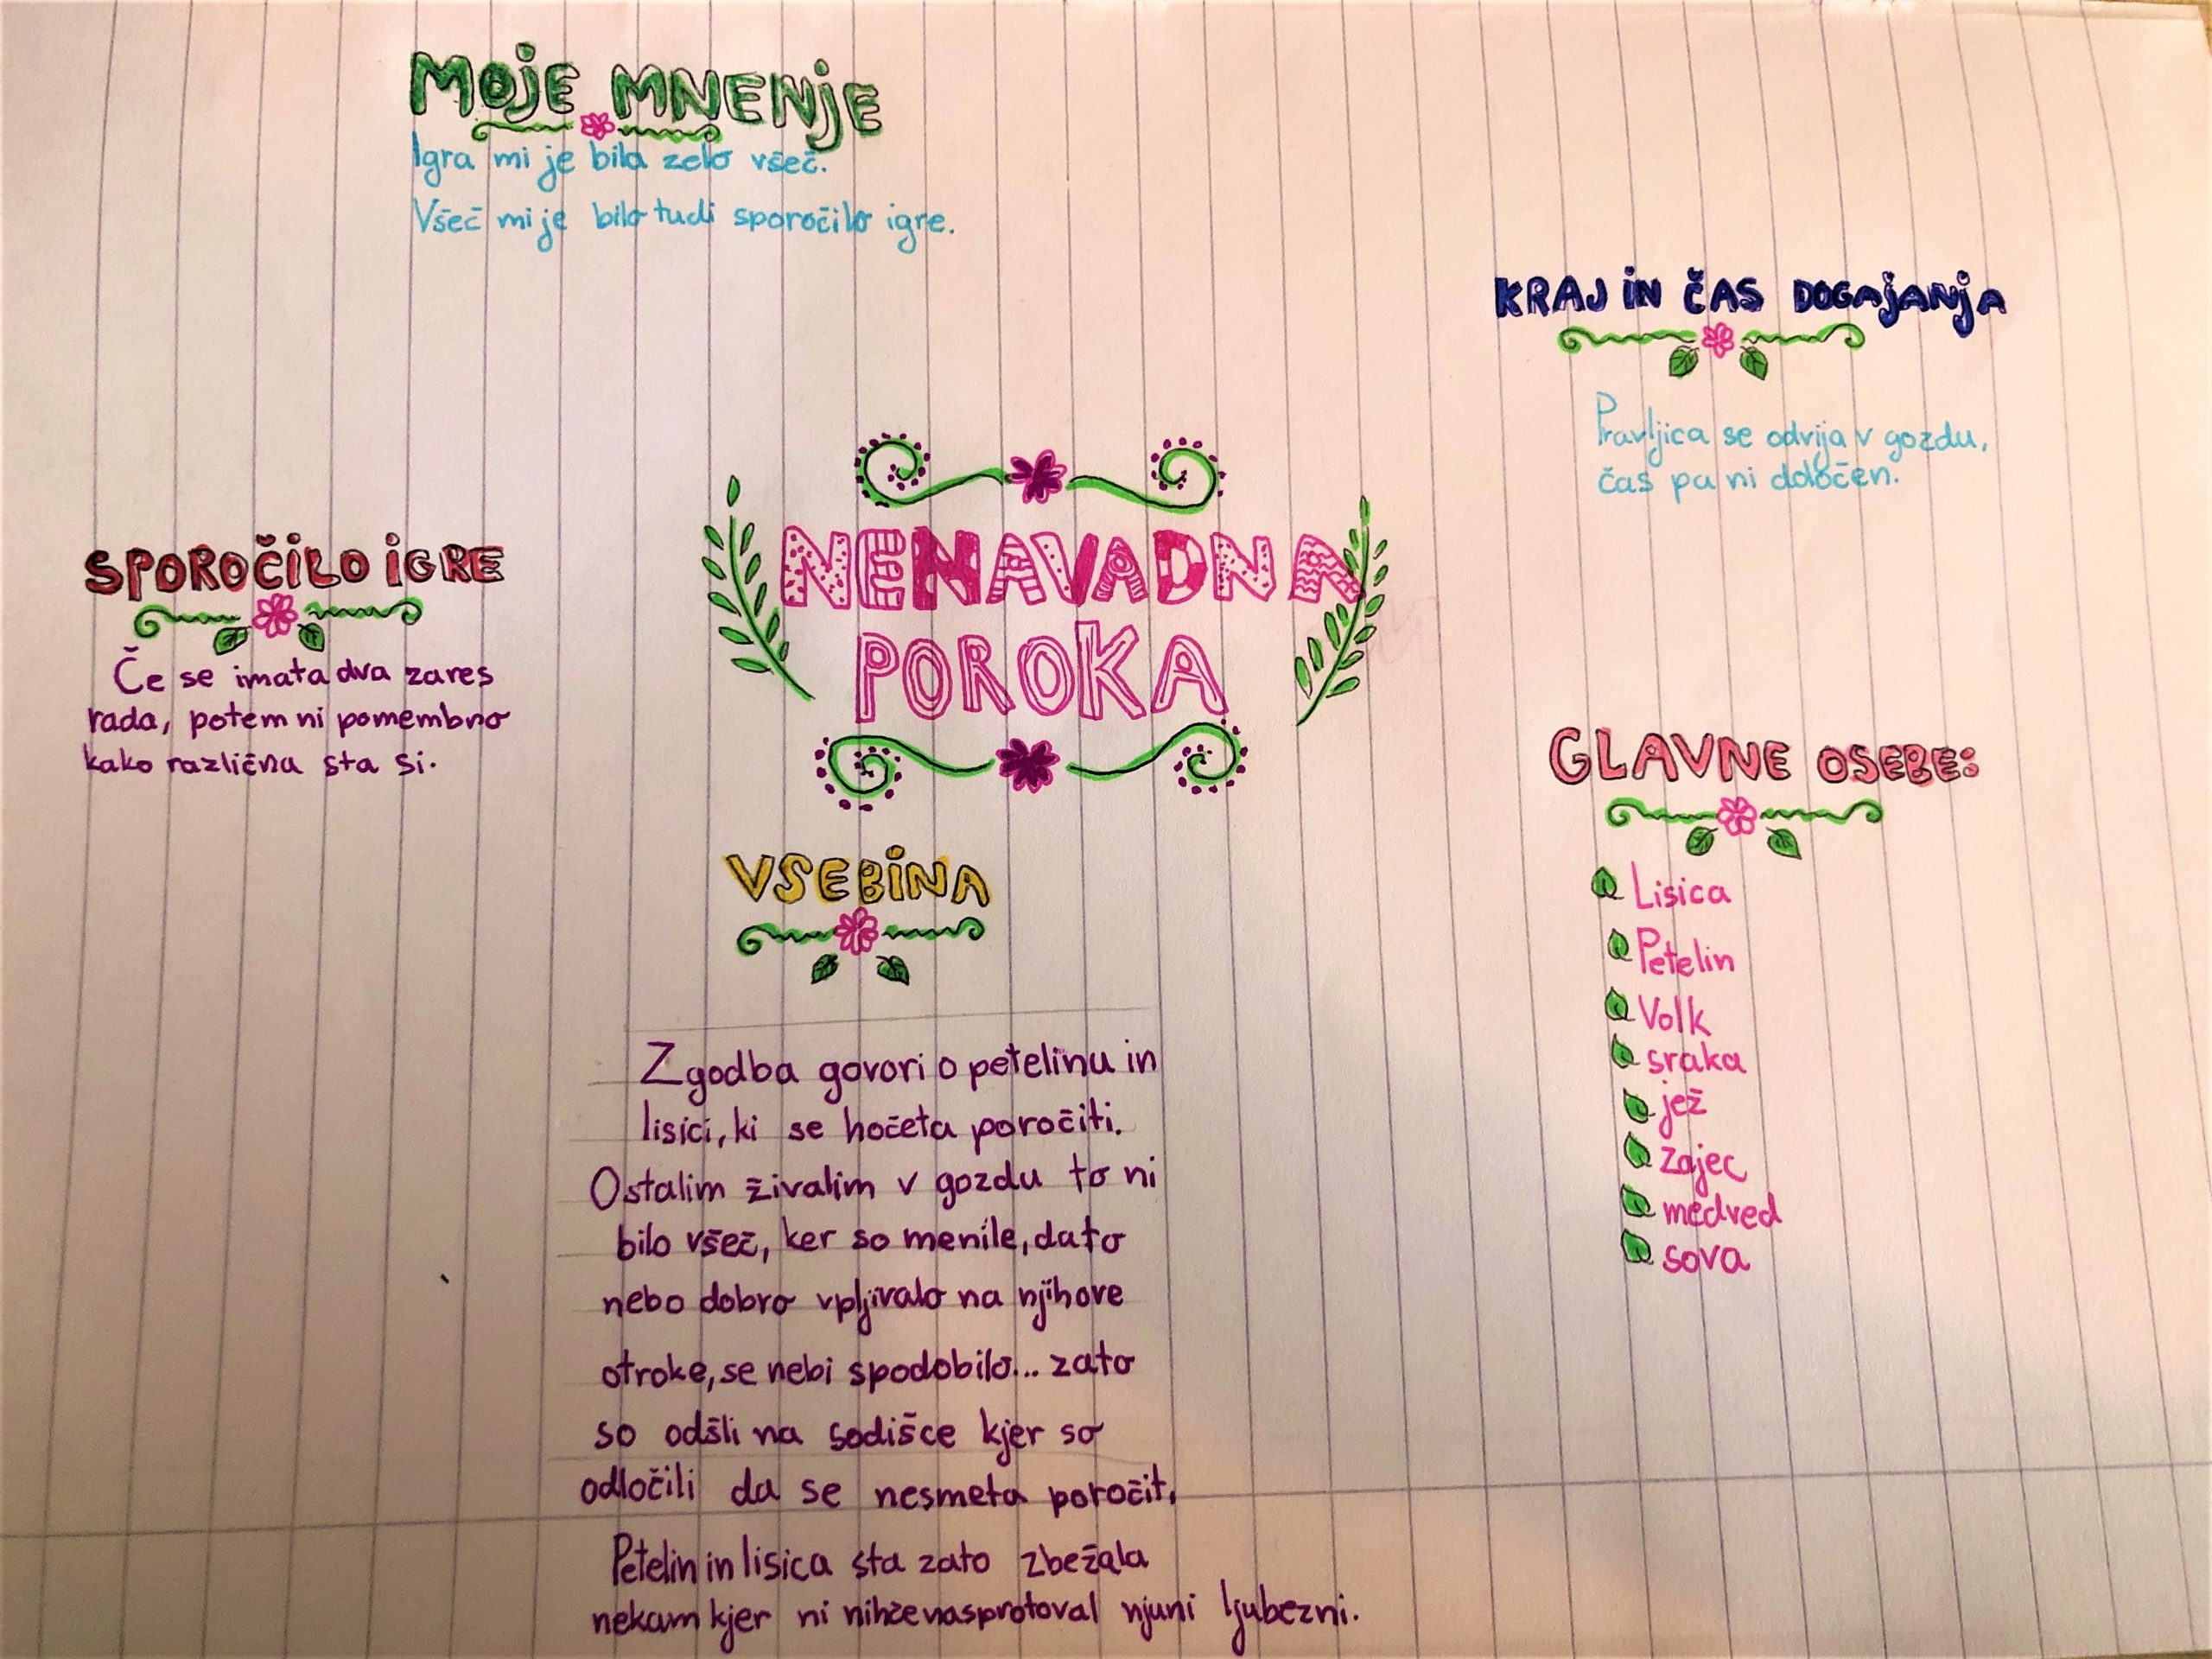 MOJE MNENJE
Igra mi je bila zelo všeč.
Všeč mi je bilo tudi sporočilo igre.
KRAJ IN ČAS DOGAJANJA
Pravljica se odvija v gozdu,
čas pa ni določen.
NENAVADNA
POROKA
SPOROČILO IGRE
Če se imata dva zares
rada, potem ni pomembno
kako različna sta si.
GLAVNE OSEBE:
Lisica
Petelin
Volk
sraka
jež
zajec
medved
sova
VSEBINA
Zgodba govori o petelinu in
lisici, ki se hočeta poročiti.
Ostalim živalim v gozdu to ni
bilo všeč, ker so menile, da to
nebo dobro vpljivalo na njihove
otroke, se nebi spodobilo... zato
so odšli na sodišče kjer so
odločili da se nesmeta poročit.
Petelin in lisica sta zato zbežala
nekam kjer ni nihče nasprotoval njuni ljubezni.